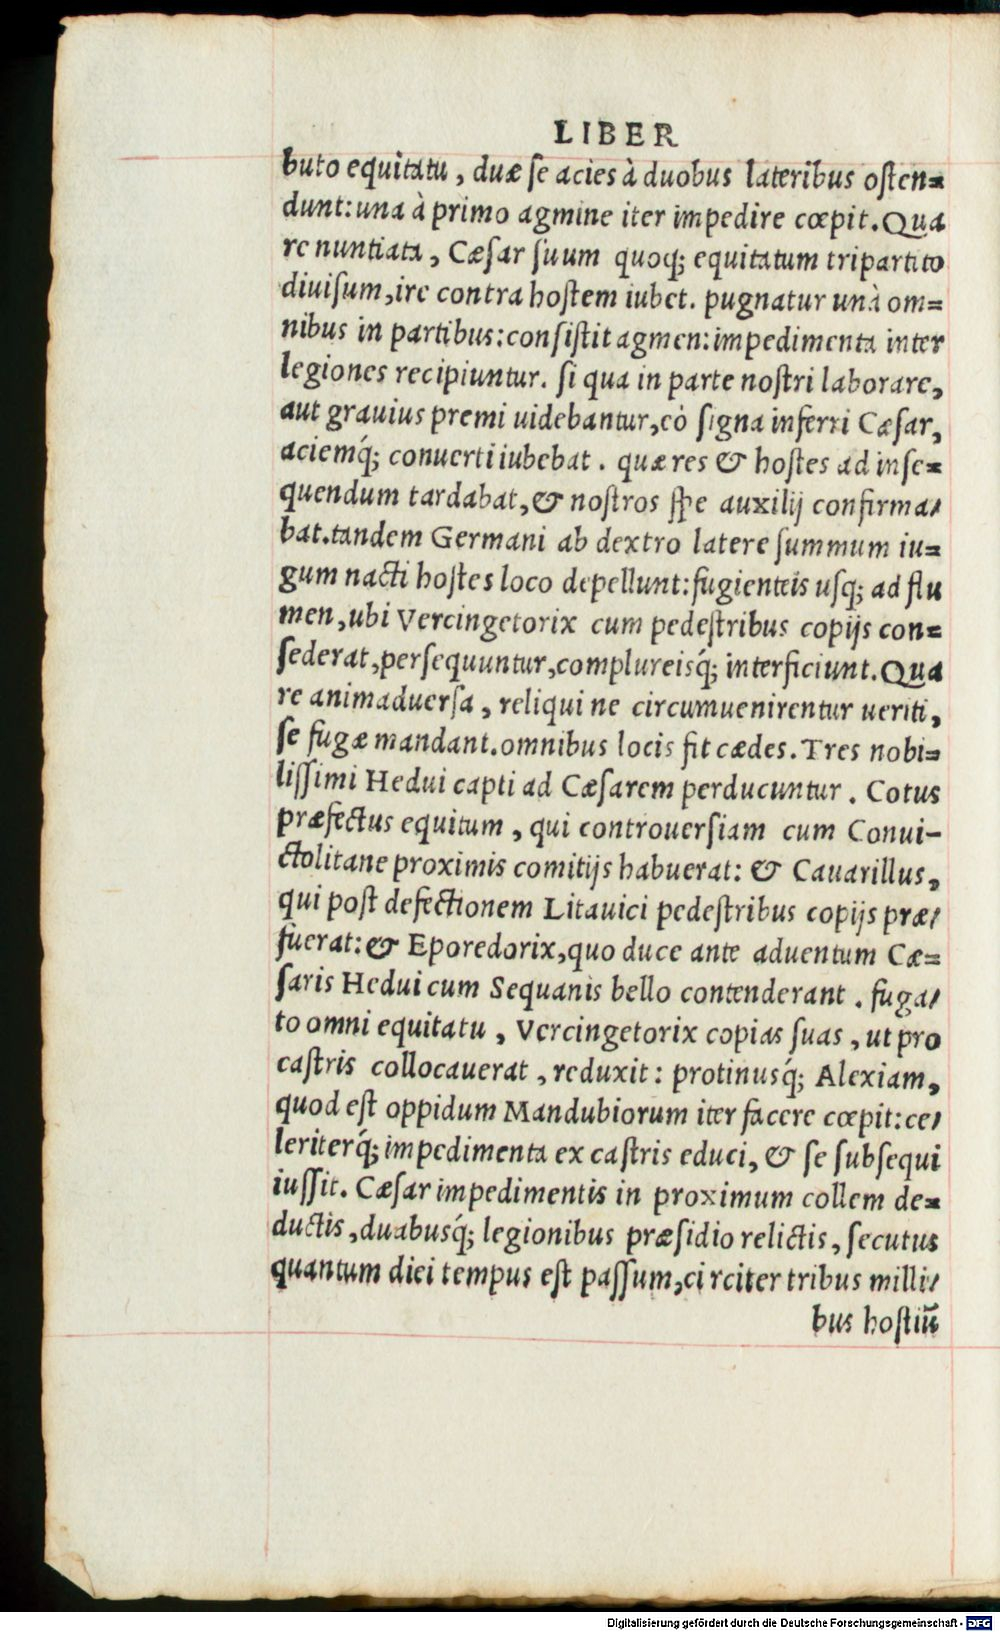 LIBER
buto equitatu, duæ ſe acies à duobus lateribus oſten=
dunt: una à primo agmine iter impedire cœpit. Qua
re nuntiata, Cæſar ſuum quoq; equitatum tripartito
diuiſum, ire contra hoſtem iubet. pugnatur unà om=
nibus in partibus: conſiſtit agmen: impedimenta inter
legiones recipiuntur. ſi qua in parte noſtri laborare,
aut grauius premi uidebantur, eò ſigna inferri Cæſar,
aciemq́; conuerti iubebat. quæ res & hoſtes ad inſe=
quendum tardabat, & noſtros ſpe auxilij confirma/
bat. tandem Germani ab dextro latere ſummum iu=
gum nacti hoſtes loco depellunt: fugienteis uſq; ad flu
men, ubi Vercingetorix cum pedeſtribus copijs con=
ſederat, perſequuntur, complureisq́; interficiunt. Qua
re animaduerſa, reliqui ne circumuenirentur ueriti,
ſe fugæ mandant. omnibus locis fit cædes. Tres nobi=
liſſimi Hedui capti ad Cæſarem perducuntur. Cotus
præfectus equitum, qui controuerſiam cum Conui-
ctolitane proximis comitijs habuerat: & Cauarillus,
qui poſt defectionem Litauici pedeſtribus copijs præ/
fuerat: & Eporedorix, quo duce ante aduentum Cæ=
ſaris Hedui cum Sequanis bello contenderant. fuga/
to omni equitatu, Vercingetorix copias ſuas, ut pro
caſtris collocauerat, reduxit: protinusq́; Alexiam,
quod eſt oppidum Mandubiorum iter facere cœpit: ce/
leriterq́; impedimenta ex caſtris educi, & ſe ſubſequi
iuſſit. Cæſar impedimentis in proximum collem de=
ductis, duabusq́; legionibus præſidio relictis, ſecutus
quantum diei tempus eſt paſſum, circiter tribus milli/
bus hoſtiū
Digitalisierung gefördert durch die Deutsche Forschungsgemeinschaft - DFG